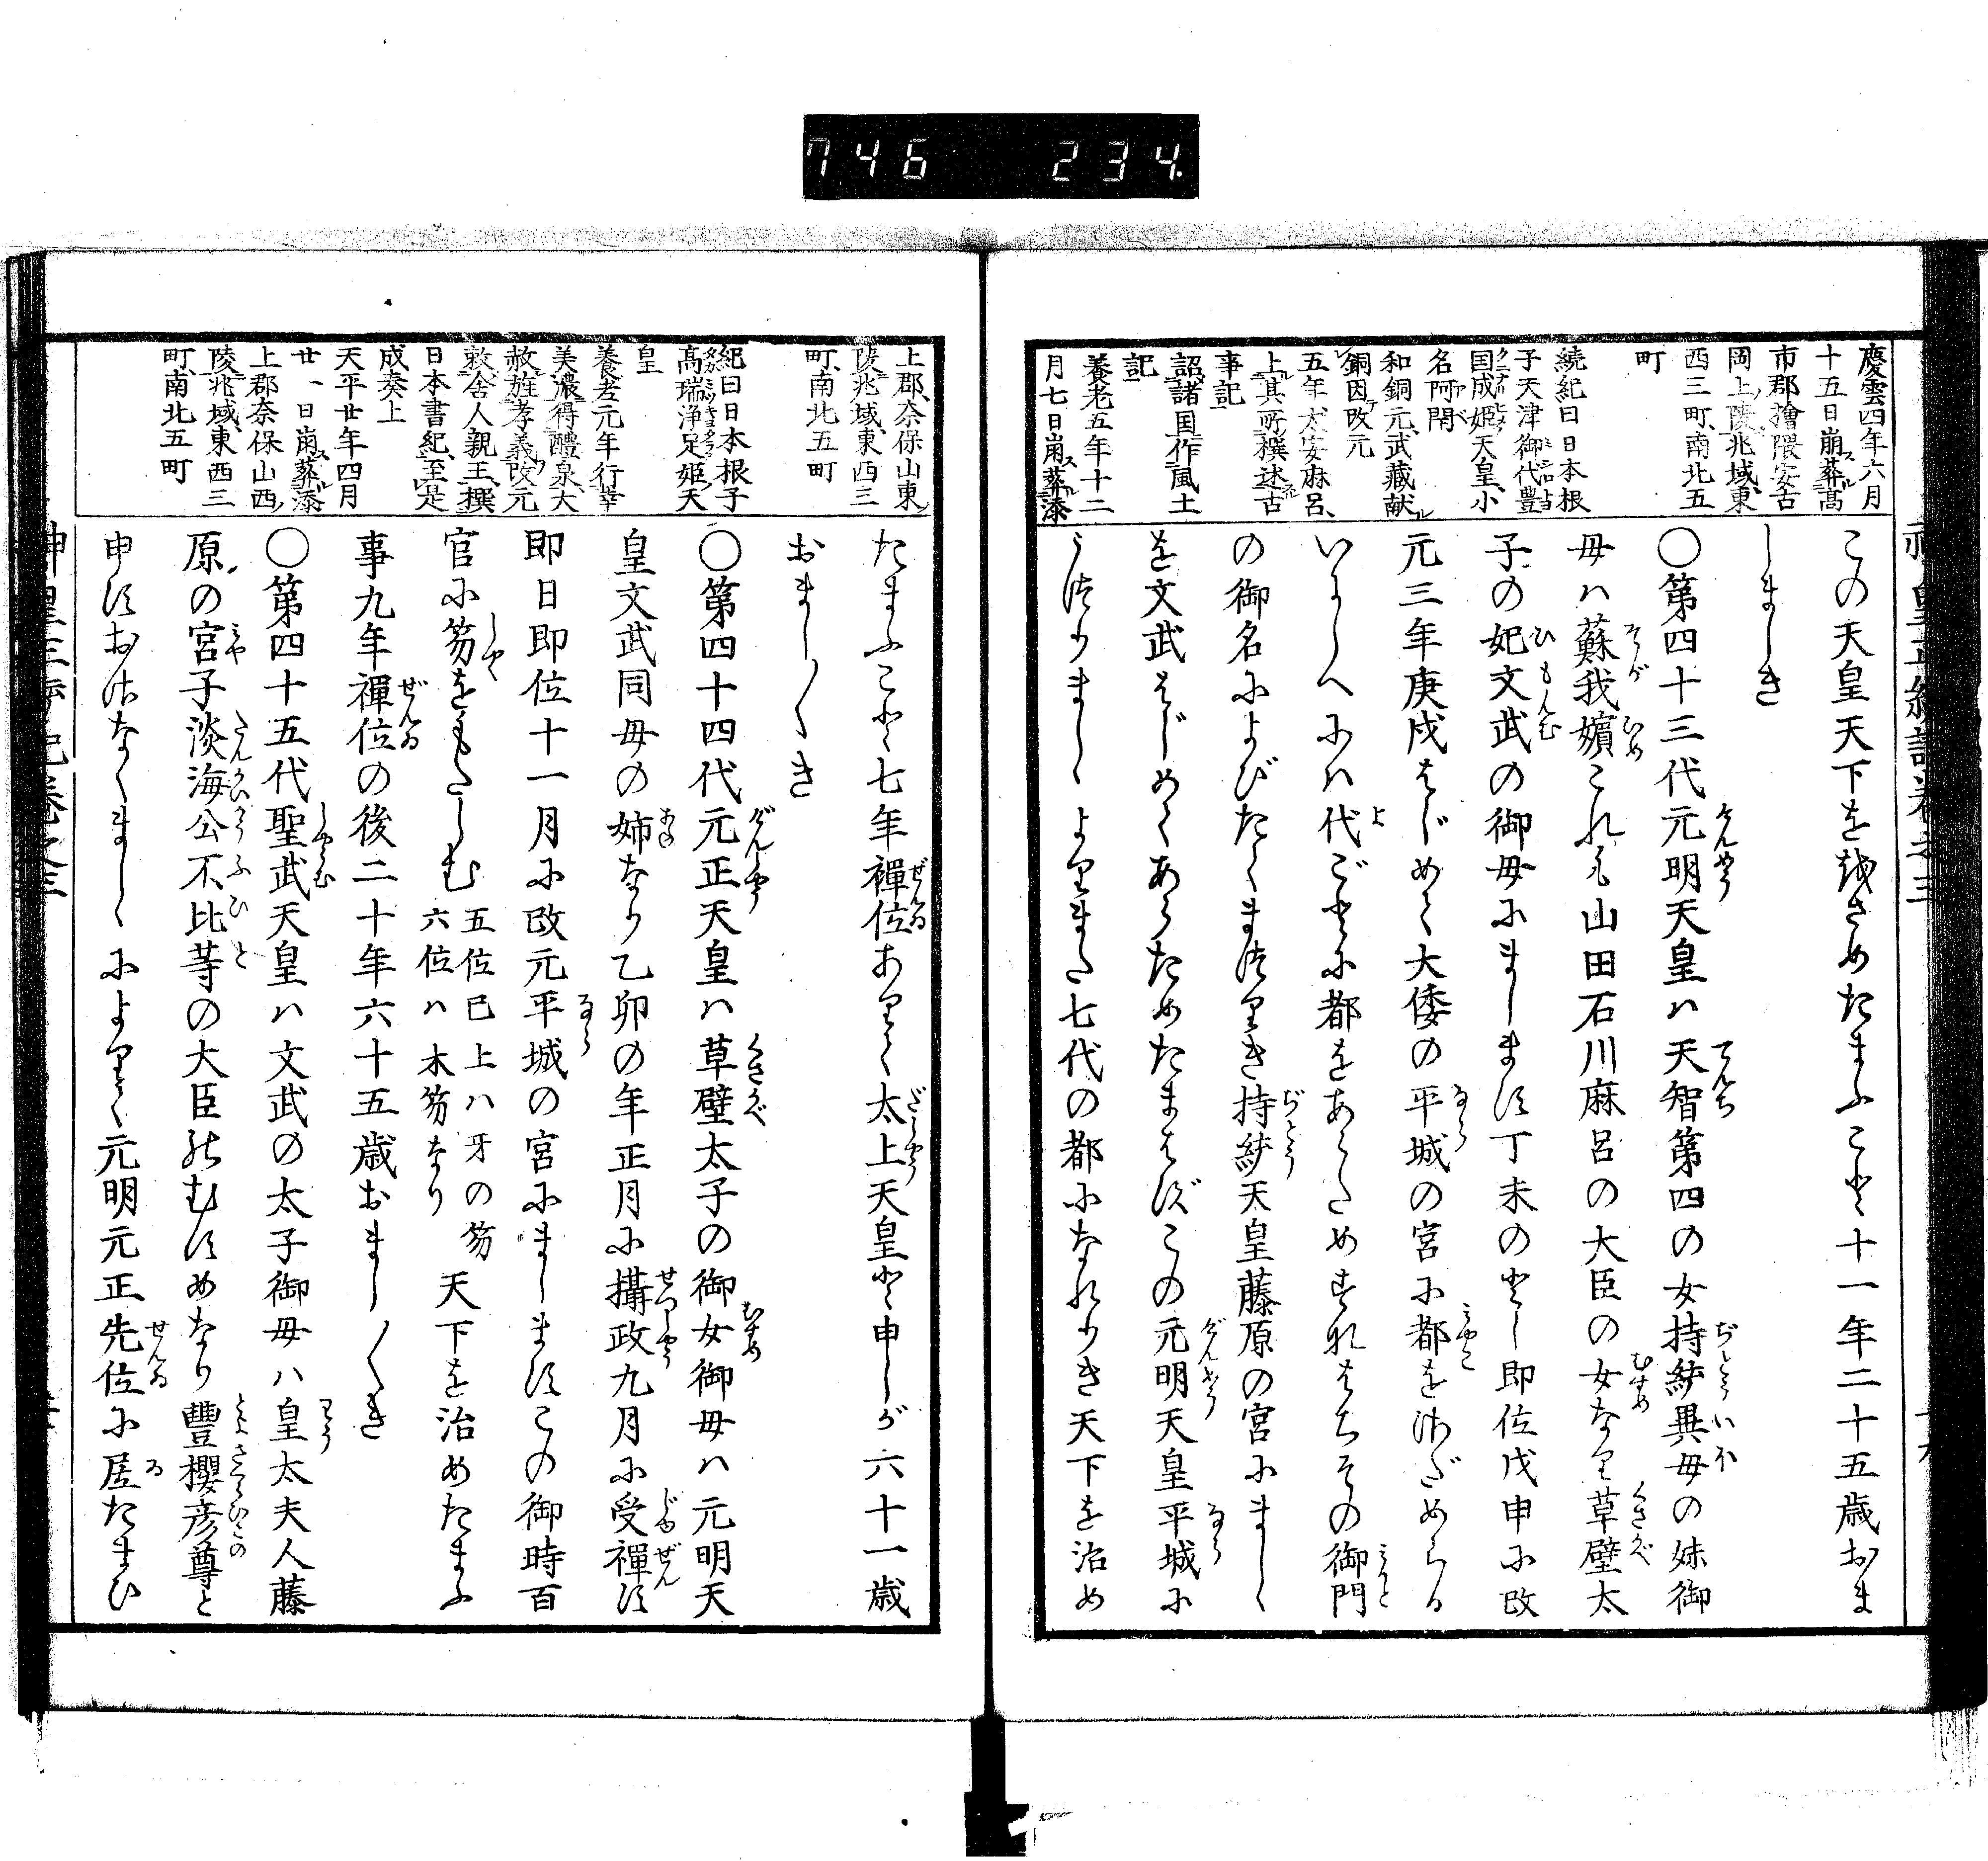 746 234
慶雲四年六月
十五日崩葬高
市郡檜隈安古
岡上陵兆域東
西三町南北五
町
続紀曰日本根
子天津御代豊
国成姫天皇小
名阿閇
和銅元武蔵献
銅因改元
五年太安麻呂
上其所撰述古
事記
詔諸国作風土
記
養老五年十二
月七日崩葬添
この天皇天下を𛄂さめたまふこと十一年二十五歳おま
しましき
〇第四十三代元明天皇ハ天智第四の女持統異母の妹御
母ハ蘇我嬪これも山田石川麻呂の大臣の女なり草壁太
子の妃文武の御母にまします丁未のとし即位戊申に改
元三年庚戌はじめて大倭の平城の宮に都をさだめらる
いにしへにハ代ごとに都をあらためすなはちその御門
の御名によびたてまつりき持統天皇藤原の宮にましし
を文武はじめてあらためたまはずこの元明天皇平城に
うつりましゝよりまた七代の都になれりき天下を治め
上郡奈保山東
陵兆域東西三
町南北五町
紀曰日本根子
高瑞浄足姫天
皇
養老元年行幸
美濃得醴泉大
赦旌孝義改元
敕舎人親王撰
日本書紀至是
成奏上
天平廿年四月
廿一日崩葬添
上郡奈保山西
陵兆域東西三
町南北五町
たまふこと七年禪位ありて太上天皇と申しが六十一歳
おまし〳〵き
〇第四十四代元正天皇ハ草壁太子の御女御母ハ元明天
皇文武同母の姉なり乙卯の年正月に攝政九月に受禪す
即日即位十一月に改元平城の宮にましますこの御時百
官に笏をもたしむ 五位已上ハ牙の笏 六位ハ木笏なり 天下を治めたまふ
事九年禪位の後二十年六十五歳おまし〳〵き
〇第四十五代聖武天皇ハ文武の太子御母ハ皇太夫人藤
原の宮子淡海公不比等の大臣のむすめなり豐櫻彦尊と
申すおさなくましゝによりて元明元正先位に居たまひ